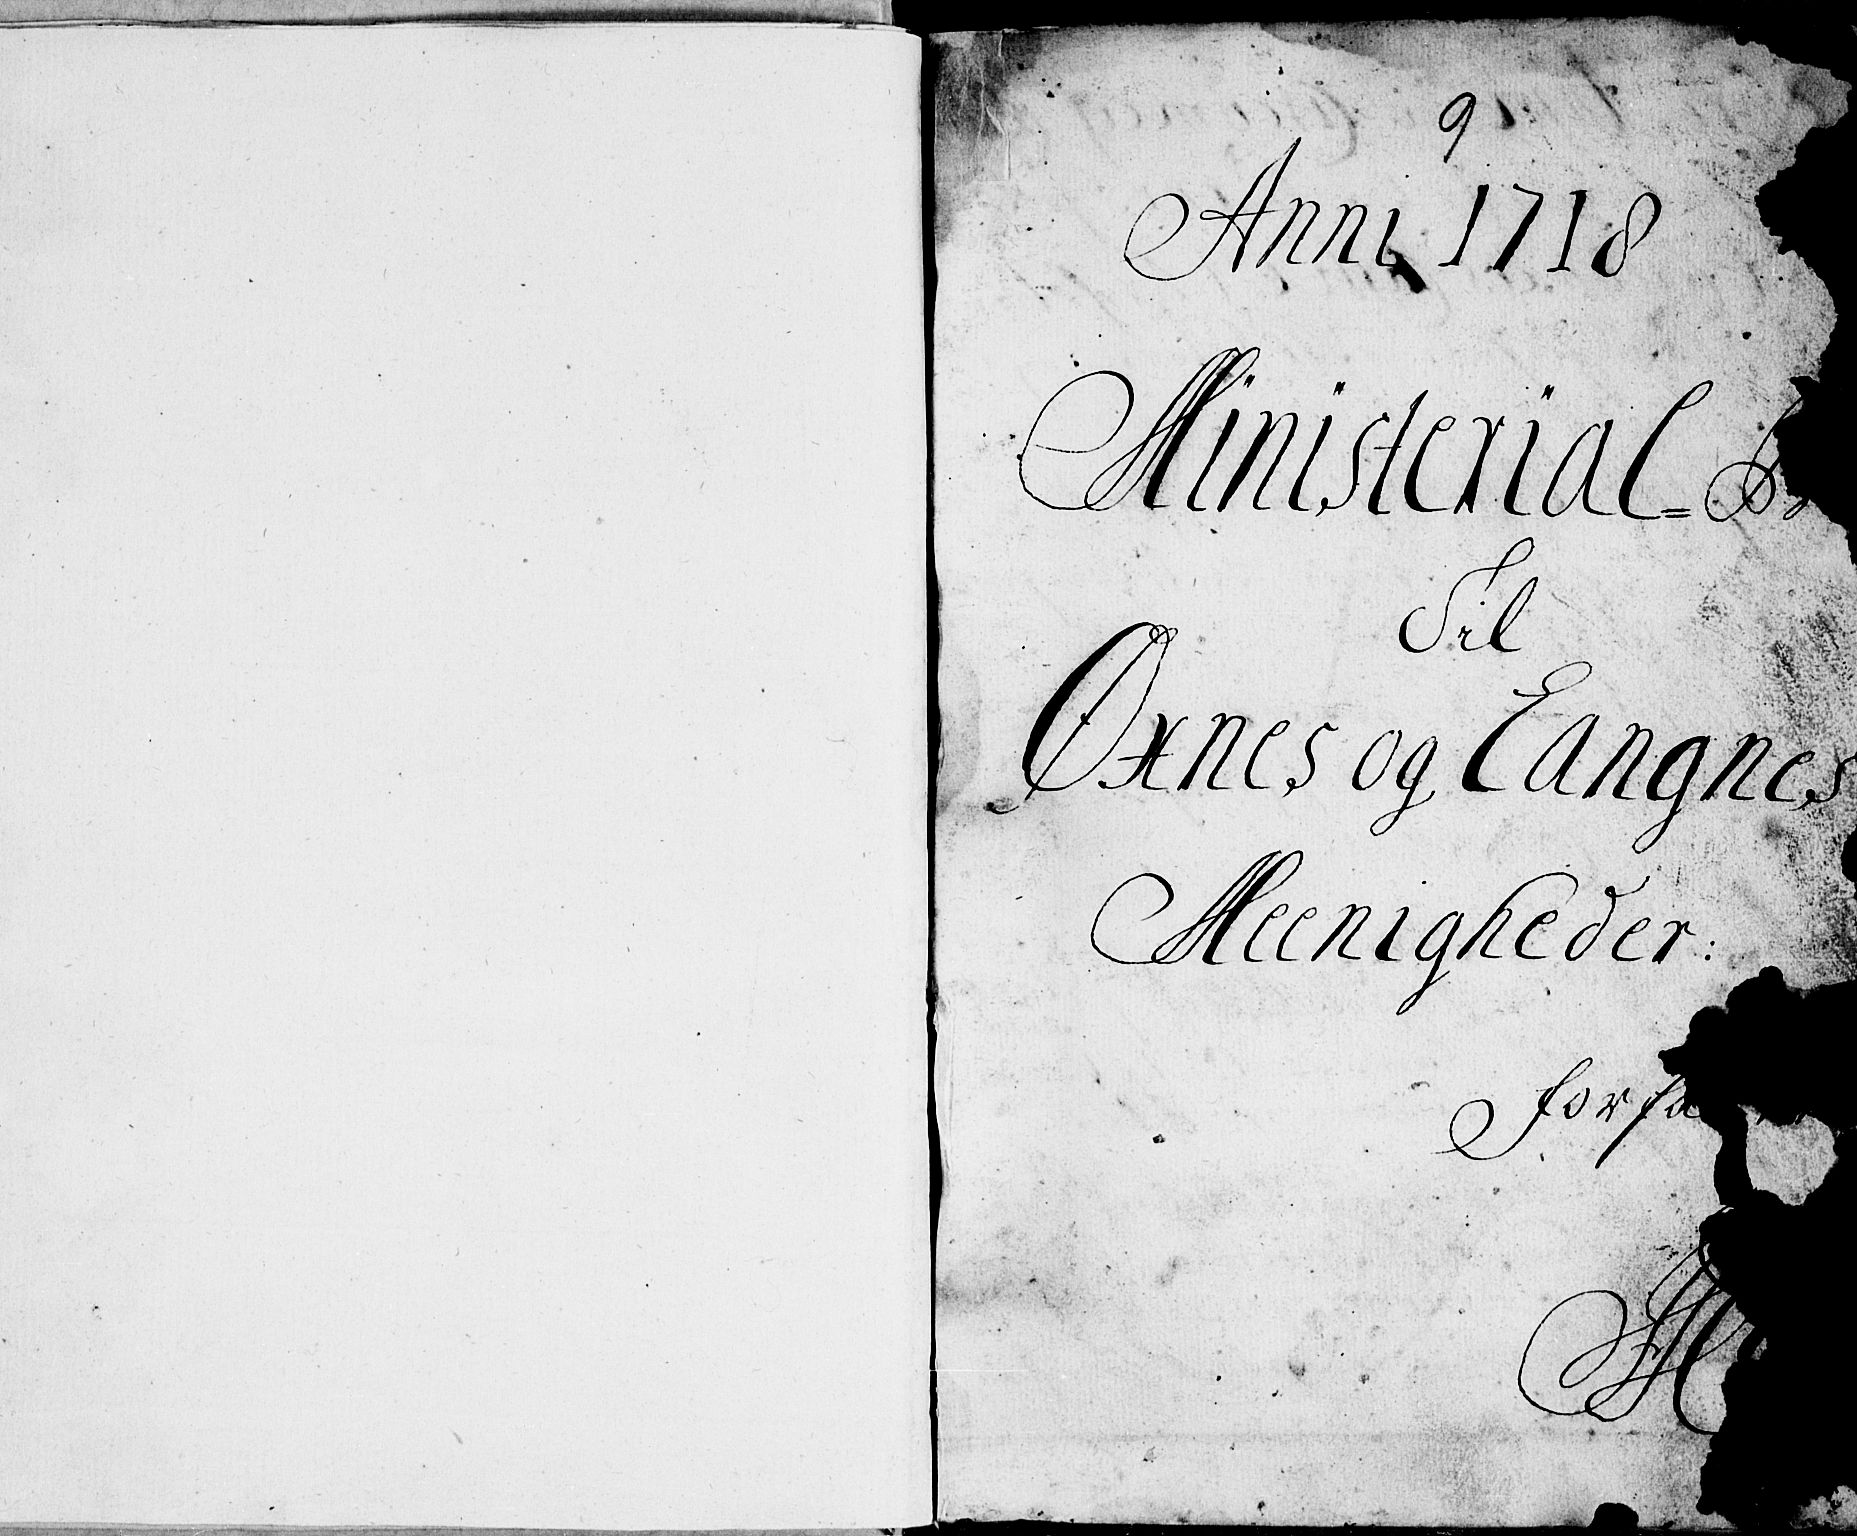 9
Anni 1718
Ministerial=
Til
Øxnes og Langnes
Meenigheder: